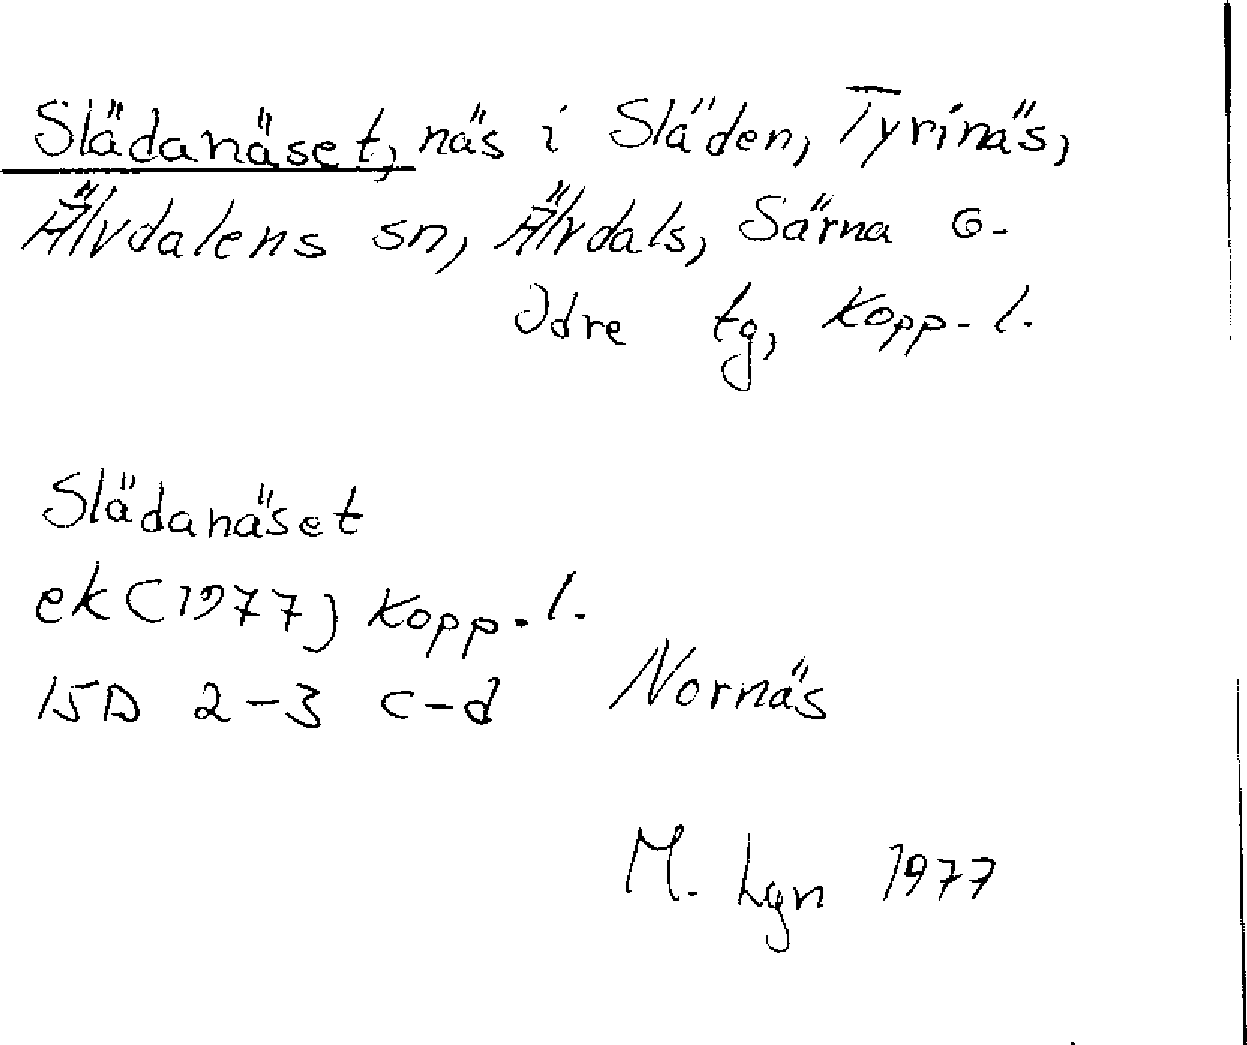 Slädanäset, näs i Släden, Tyrinäs,
Älvdalens sn, Älvdals, Särna o.
Idre tg, Kopp. l.
Slädanäset
ek (1977) Kopp. l.
15D 2-3 c-d Nornäs
M. Lgn 1977